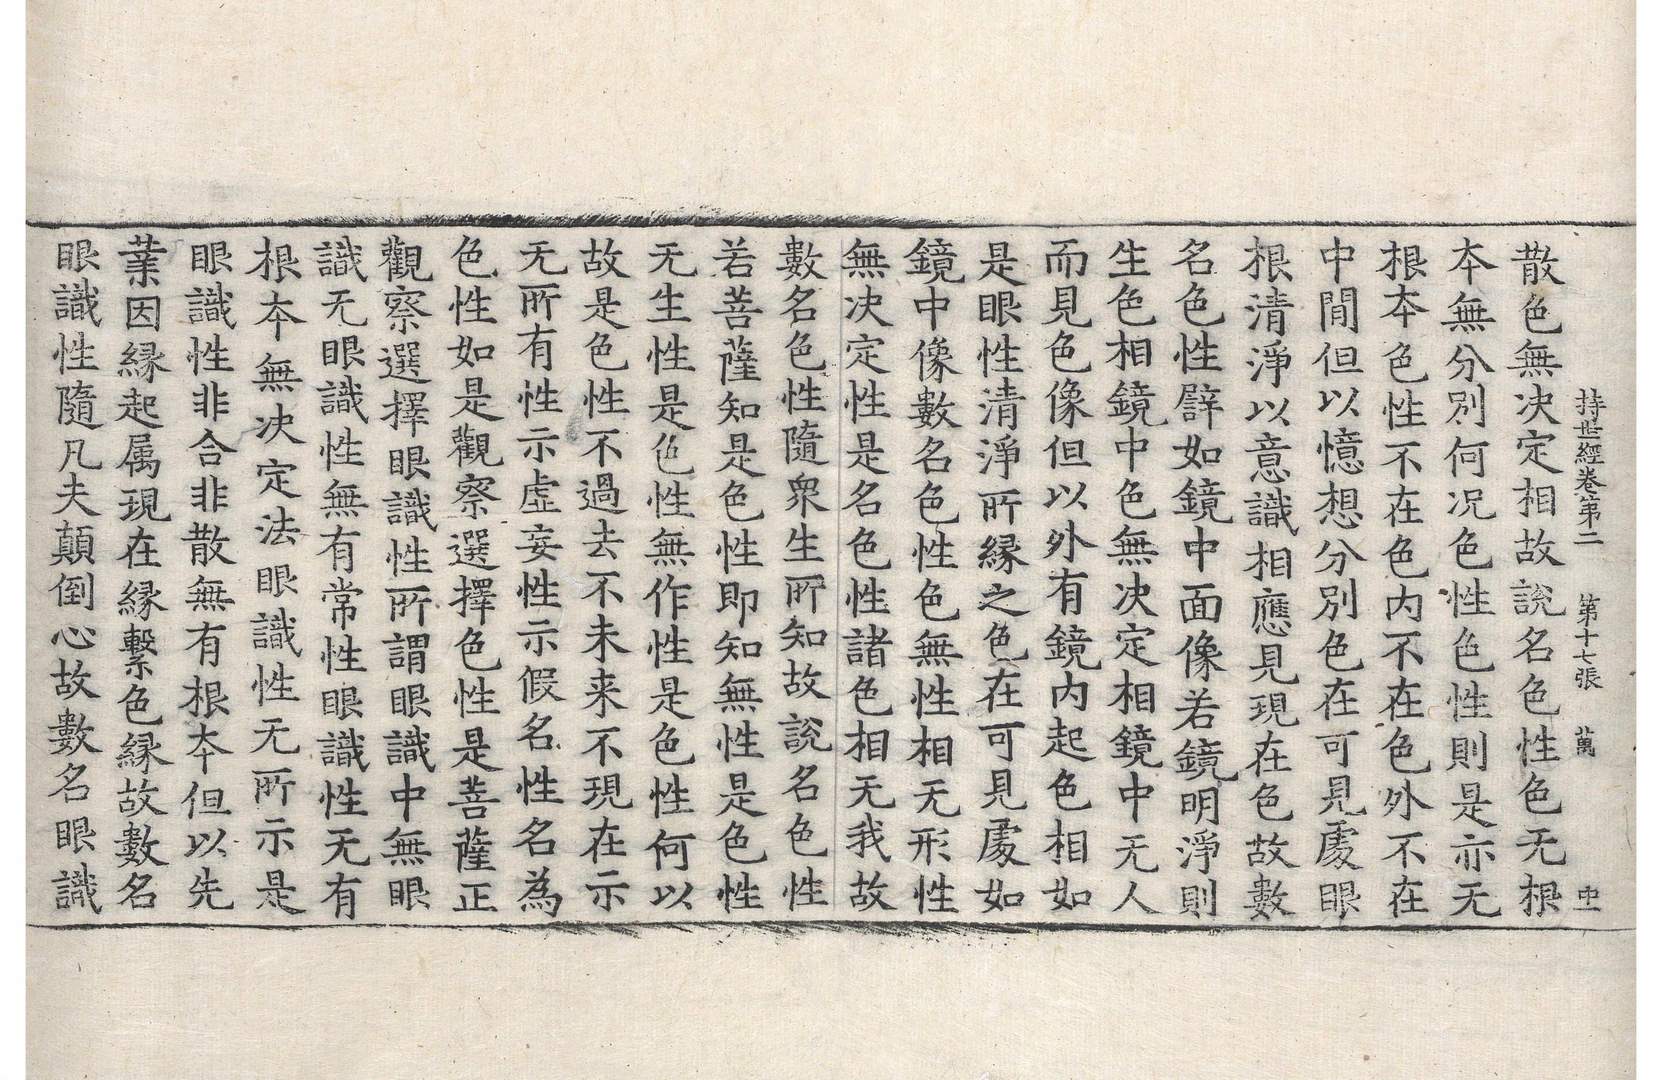 持世經卷第二　第十七張　萬
散色無决定相故說名色性色无根
夲無分別何況色性色性則是亦无
根夲色性不在色内不在色外不在
中間但以憶想分別色在可見處眼
根清淨以意識相應見現在色故數
名色性譬如鏡中面像若鏡明淨則
生色相鏡中色無决定相鏡中无人
而見色像但以外有鏡内起色相如
是眼性清淨所縁之色在可見處如
鏡中像數名色性色無性相无形性
無决定性是名色性諸色相无我故
數名色性隨衆生所知故說名色性
若菩薩知是色性即知無性是色性
无生性是色性無作性是色性何以
故是色性不過去不未来不現在示
无所有性示虛妄性示假名性名為
色性如是觀察選擇色性是菩薩正
觀察選擇眼識性所謂眼識中無眼
識无眼識性無有常性眼識性无有
根夲無决定法眼識性无所示是
眼識性非合非散無有根夲但以先
業因縁起属現在縁繫色縁故數名
眼識性隨凡夫顛倒心故數名眼識